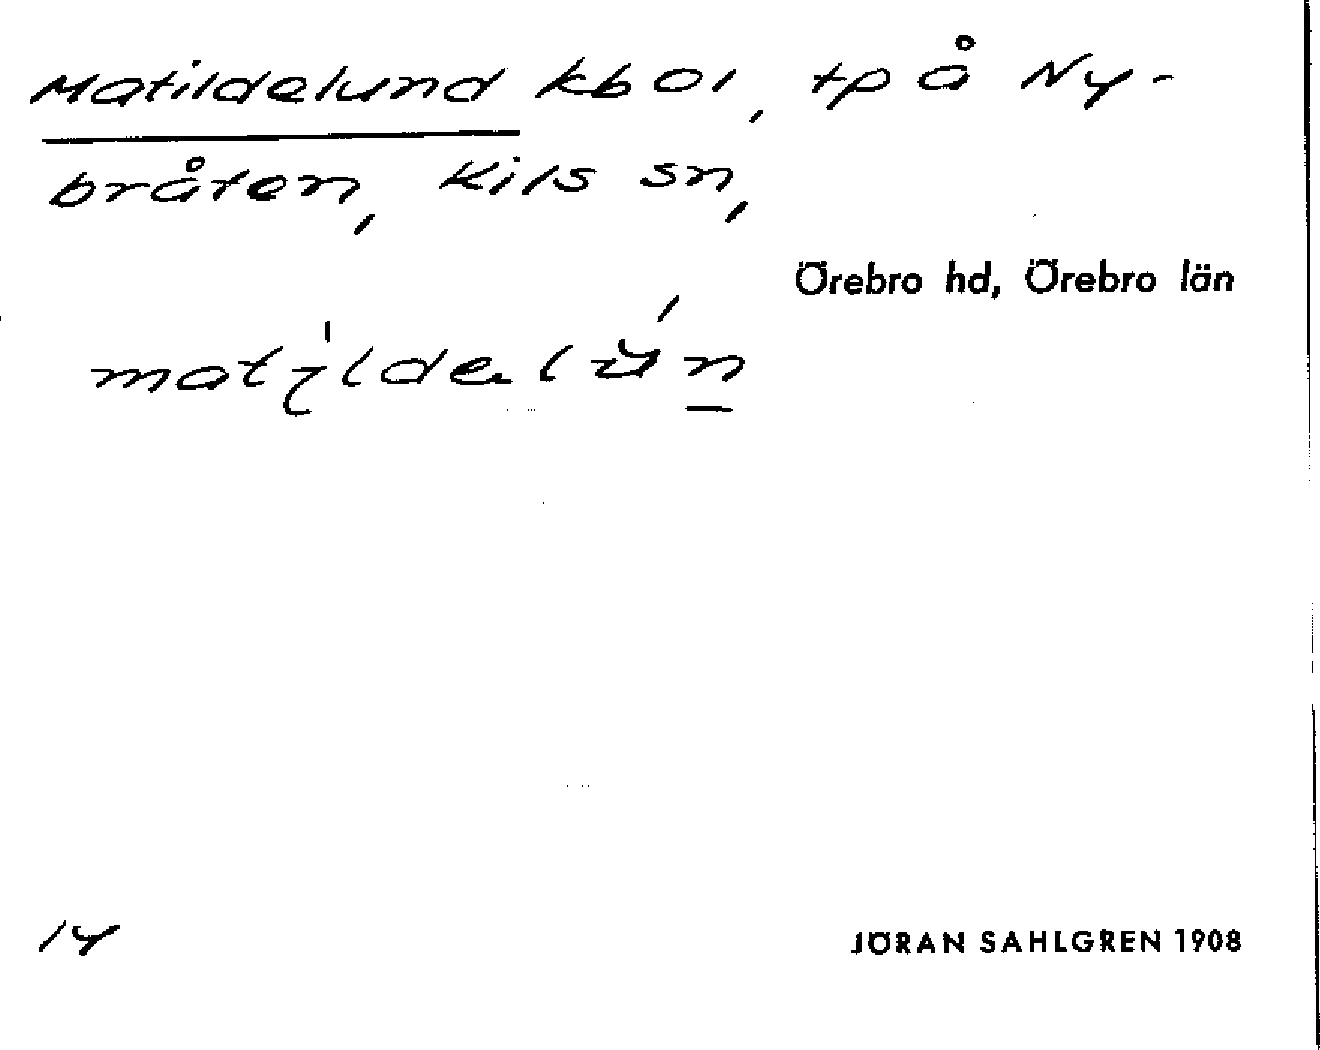 Matildelund kb Ol, tp å Ny-
bråten, Kils sn,
Örebro hd, Örebro län
14
JÖRAN SAHLGREN 1908